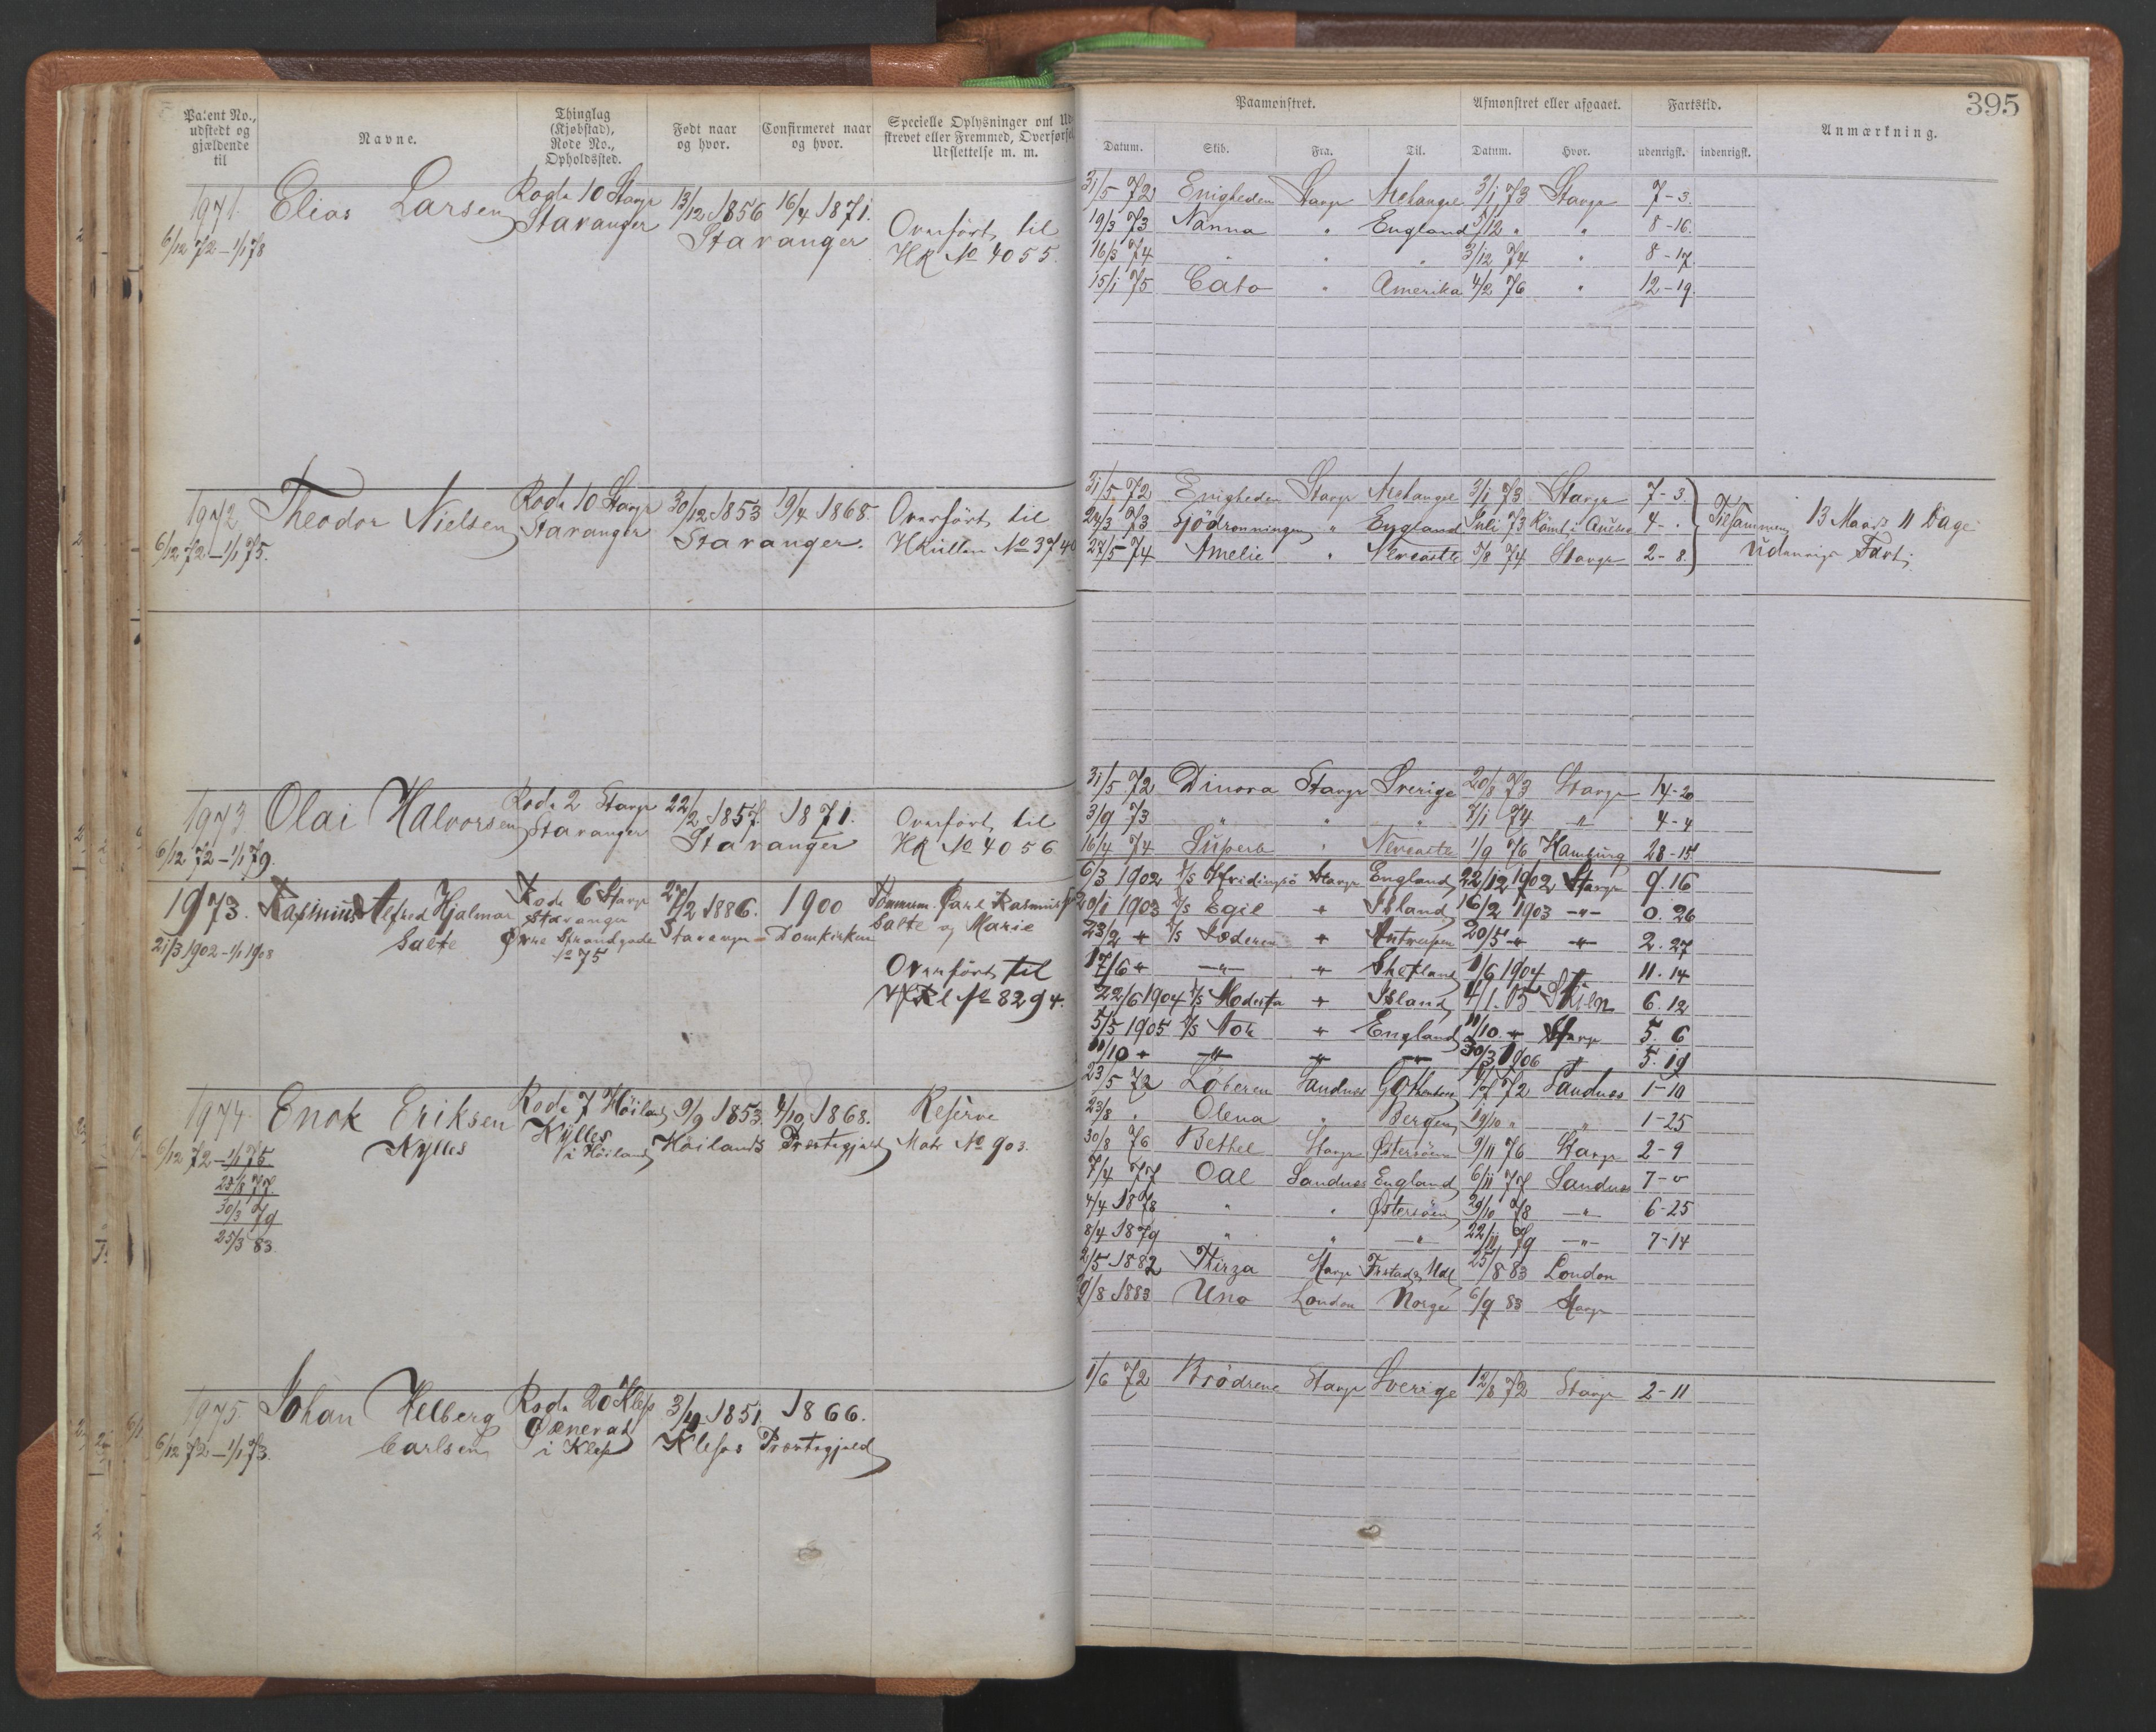 Patent No., udstedt og gjældende til
Navne.
Thinglag (Kjøbstad), Rode No., Opholdssted.
Født naar og hvor.
Confirmeret naar og hvor.
Specielle Oplysninger om Ud-
skrevet eller Fremmed, Overførsel
Udslettelse m. m.
1971. Elias Larsen Rode 10 Stavgr 13/12 1856 16/4 1871.
6/12 72 – 1/1 78 Stavanger Stavanger Overført til
HR No 4055.
1972 Theodor Nielsen Rode 10 Stavgr 30/12 1853 19/4 1868. Overført til
6/12 72 – 1/1 75. Stavanger Stavanger. HRullen No 3740
1973. Olai Halvorsen Rode 2 Stavgr 22/2 1857. 1871. Overført til
6/12 72 – 1/1 79. Stavanger Stavanger HR No 4056
1973. Rasmus Alfred Hjalmar Rode 6 Stavgr 27/2 1886. 1900
Salte Stavanger Stavanger – Domkirken Salte og Marie
21/3 1902 – 1/1 1908 Øvre Strandgade
No 75
Overført til
HRl No 8294.
1974. Enok Eriksen Rode 7 Höiland 9/9 1853. 4/10 1868. Reserve
6/12 72 – 1/1 75 Kylles Kylles i Höiland Höilands Præstegjeld Mak No 903.
23/8 77.
30/3 79
25/3 83.
1975. Johan Helberg Rode 20 Klep 3/4 1851. 1866.
6/12 72 – 1/1 73. Carlsen i Klep Kleps Præstegjeld
395
Paamønstret. Afmønstret eller afgaaet. Fartstid.
Anmærkning.
Datum. Skib. Fra. Til. Datum. Hvor. udenrigsk. indenrigsk.
31/5 72 Enigheden Stavgr Archangel 3/1 73 Stavgr 7–3.
19/3 73 Nanna " England 5/12 " " 8–16.
16/3 74 " " " 3/12 74 " 8–17.
15/1 75 Cato " Amerika 4/2 76 " 12–19.
31/5 72 Enigheden Stavgr Archangel 3/1 73 Stavgr 7–3.
24/3 73 Sjödronningen " England Juli 73 Römt i 4– . Tilsammen 13 Maandr 11 Dage
27/5 74 Amelie " Newcastle 5/8 74 Stavgr 2–8. udenrigs Fart.
31/5 72 Dinora Stavgr Sverige 20/8 73 Stavgr 14–20
3/9 73 " " " 7/1 74 " 4–4
16/4 74 Superb " Newcastle 1/9 76 Hamburg 28–15
6/3 1902 Stavgr England 22/12 1902 Stavgr 9.16
20/1 1903 D/s Egil " Island 16/2 1903 –"– 0.26
23/2 " D/s Jæderen " Antwerpen 20/5 " –"– 2.27
17/6 " –"– " Shetland 1/6 1904 " 11.14
22/6 1904 D/s Modesta " Island 4/1 05 6.12
5/5 1905 D/s Nok " England 11/10 " Stavgr 5.6
11/10 " –"– –"– –"– 30/3 1906 " 5.19
23/5 72 Löberen Sandnes Gothenborg 1/7 72 Sandnes 1–10
23/8 " Olena " Bergen 19/10 " " 1–25
30/8 76 Bethel Stavgr Østersöen 9/11 76 Stavgr 2–9
7/4 77 Oal Sandnes England 6/11 77 Sandnes 7–0
4/4 1878 " " Østersöen 29/10 78 –"– 6–25
8/4 1879 " " –"– 22/11 79 –"– 7–14
2/5 1882 Thirza Stavgr Udl 25/8 83 London
29/8 1883 Uno London Norge 6/9 83 Stavgr
1/6 72 Brödrene Stavgr Sverige 12/8 72 Stavgr 2–11